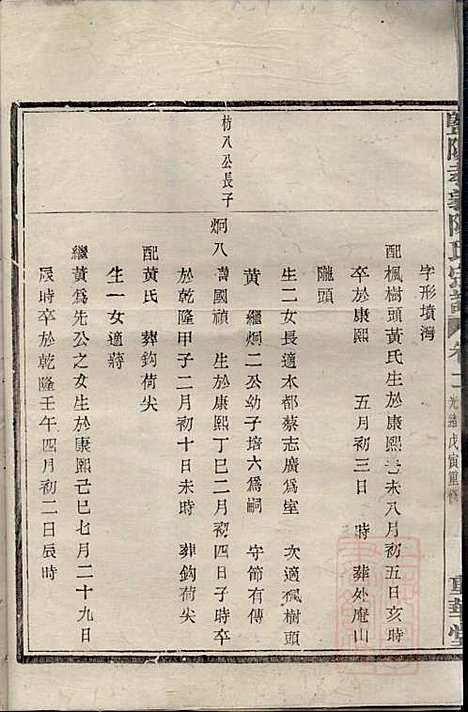 暨陽孝義陳氏宗譜 卷二 光緒戊寅重修
字形墳灣
配楓樹頭黃氏生於康熙己未八月初五日亥時
卒於康熙 五月初三日 時 葬处庵山
隴頭
生二女長適水都蔡志廣爲室 次適楓樹頭
黃 繼烱二公幼子培六爲嗣 守節有傳
枋八公長子
烱八 諱國禎 生於康熙丁巳二月初四日子時卒
於乾隆甲子二月初十日未時 葬鈎荷尖
配黃氏 葬鈎荷尖
生一女適蔣
繼黃爲先公之女生於康熙己巳七月二十九日
辰時卒於乾隆壬午四月初二日辰時